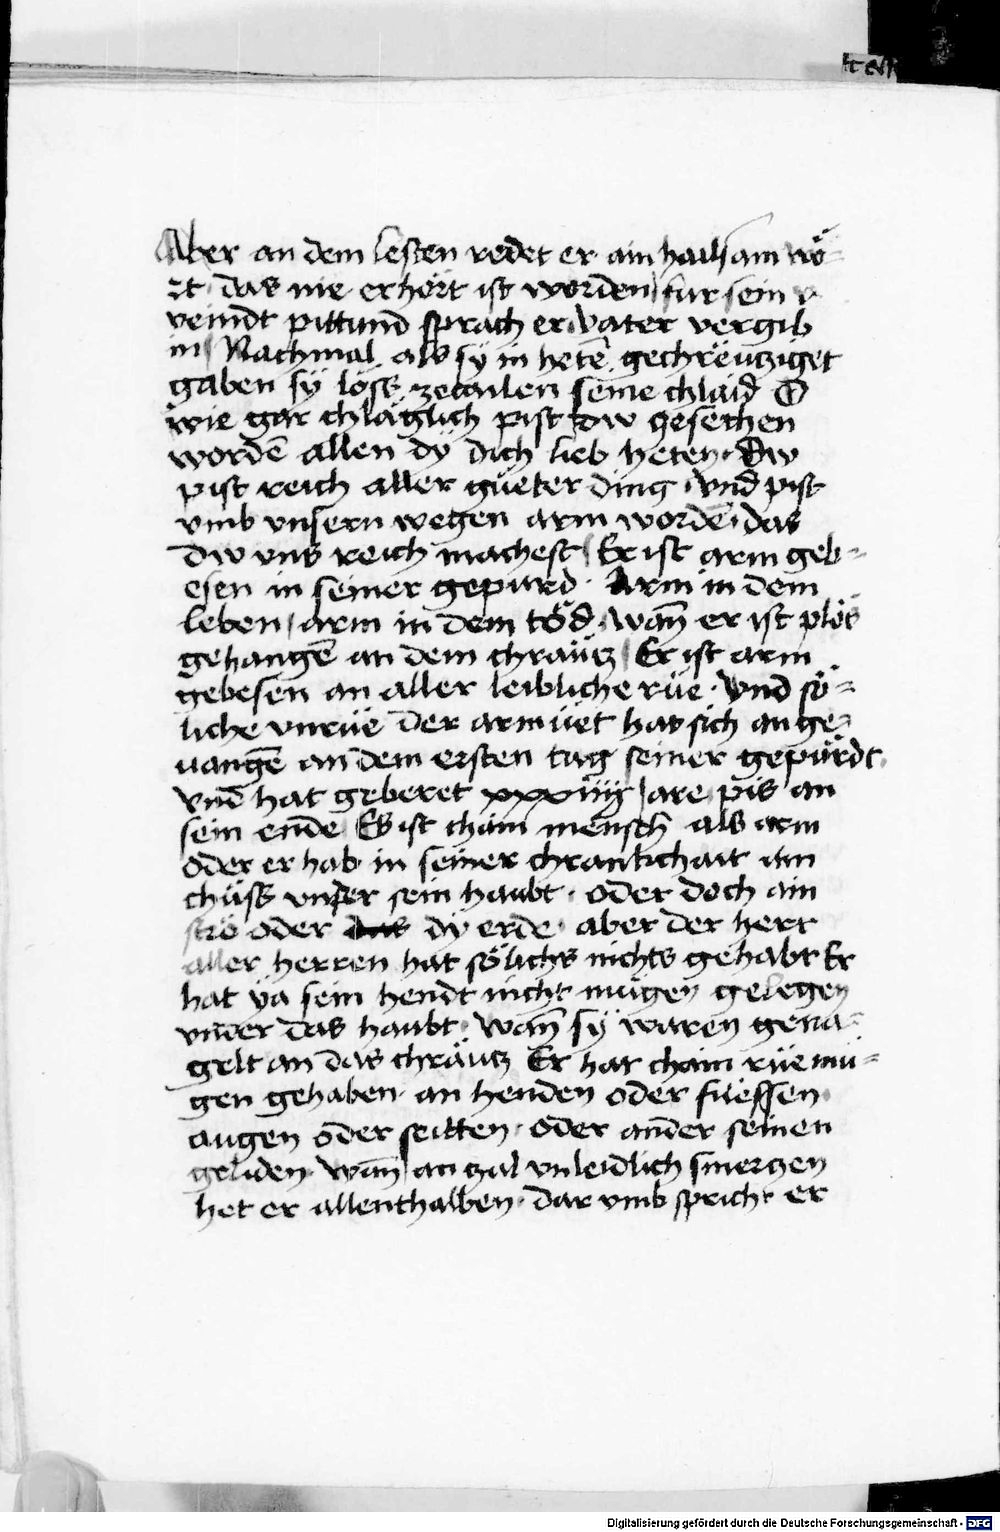 Aber an dem lesten redet er ain hailsam wö-
rt das nie erhört ist worden fur sein
veindt pittund sprach er vater vergib
in Nachmal als sÿ in hetē gechrëutziget
gaben sÿ löss zetailen seine chlaid O
wie gar chläglich pist dw gesechen
wordē allen dÿ dich lieb heten Dw
pist reich aller güeter ding vnd pist
vmb vnsern wegen arm wordē das
dw vns reich machest Er ist arm geb-
esen in seiner gepurd Arm in dem
leben arm in dem töd wan̄ er ist plös
gehangē an dem chräutz Er ist arm
gebesen an aller leibliche rüe Vnd sö-
liche vnrüe der armüet hat sich an ge-
uangē an dem ersten tag seiner gepürdt
vnd hat geberet xxxiiij iare pis an
sein ende Es ist chain mensch als arm
oder er hab in seiner chranckchait ain
chüss vnder sein haubt oder doch ain
strö oder das dÿ erde aber der herr
aller herren hat sölichs nichts gehabt Er
hat ÿa sein hendt nicht mügen gelegen
vnder das haubt wan̄ sÿ waren gena-
gelt an das chräutz Er hat chain rüe mü-
gen gehaben an henden oder füessen
augen oder seitten oder ander seinen
geliden wan̄ an zal vnleidlich smerzen
het er allenthalben dar vmb spricht er
Digitalisierung gefördert durch die Deutsche Forschungsgemeinschaft - DFG